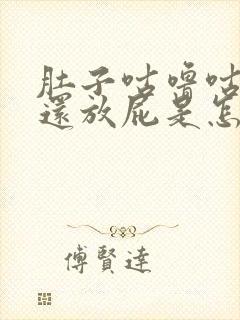 肚子咕嚕咕
還放屁是怎
傅賢達